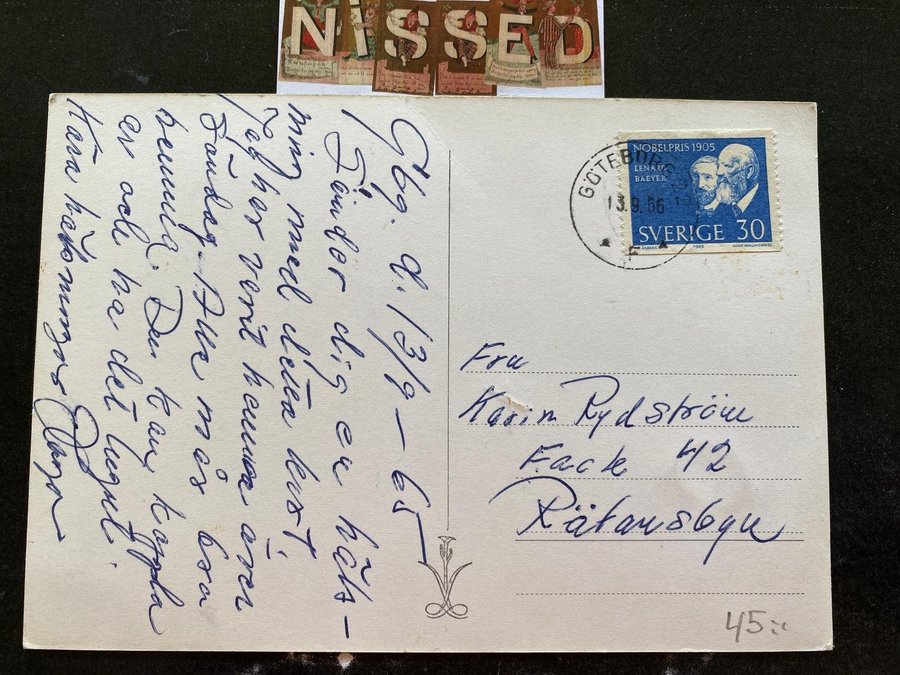 NISSED
Gbg. d. 13/9 – 65
Sänder dig en häls-
ning med detta kort.
Jag har varit hemma över
Söndag. Alla mår bra
hemma. Du kan koppla
av och ha det lugnt.
Kära hälsningar
NOBELPRIS 1905
LENARD
BAEYER
SVERIGE 30
GÖTEBORG
13.9.66
F
Fru
Karin Rydström
Fack 42
Rätansbyn
45:-